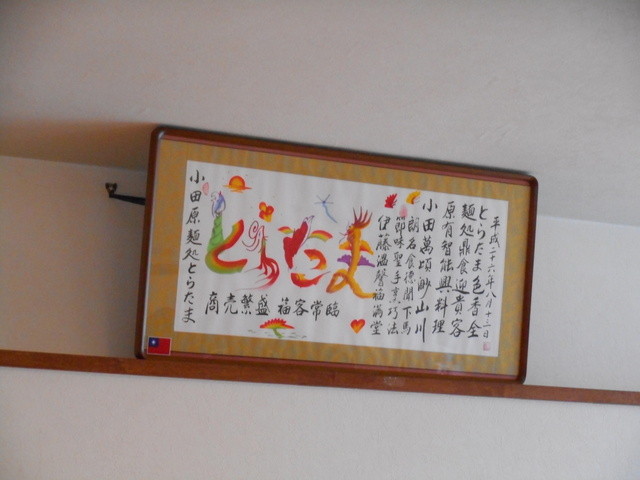 平成二十六年八月十三日
とらたま色香全
麺処鼎食迎貴客
原有智能興料理
小田萬頃渺山川
朗名食德聞下馬
節味聖手烹巧法
伊藤温馨福满堂
とらたま
商売繁盛 福客常臨
小田原麺処とらたま